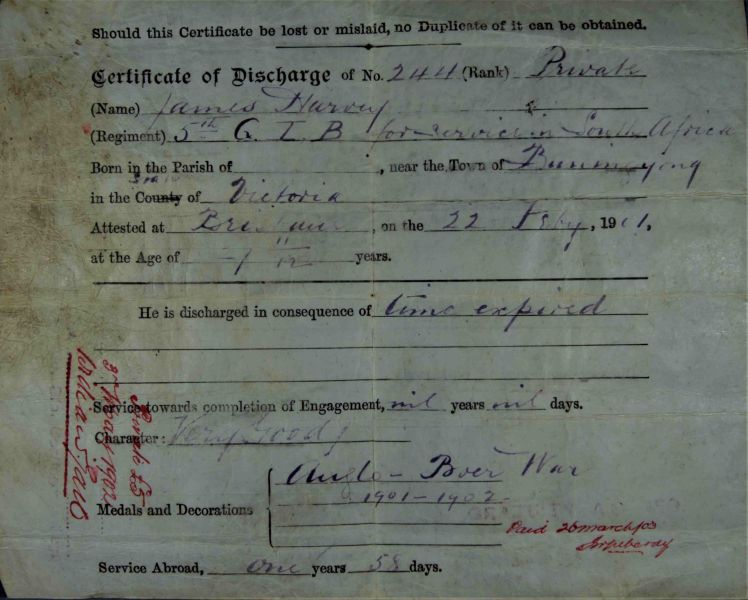 Should this Certificate be lost or mislaid, no Duplicate of it can be obtained.
Certificate of Discharge of No. 244 (Rank) Private
(Name) James Harvey
(Regiment) 5th Q I B for service in South Africa
Born in the Parish of , near the Town of Buninyong
in the County of Victoria
Attested at Brisbane, on the 22 Feby, 1901,
at the Age of years.
He is discharged in consequence of time expired
Service towards completion of Engagement, nil years nil days.
Character: Very Good
Anglo-Boer War
1901-1902
Medals and Decorations
Paid 26 March/03
Service Abroad, one years 58 days.